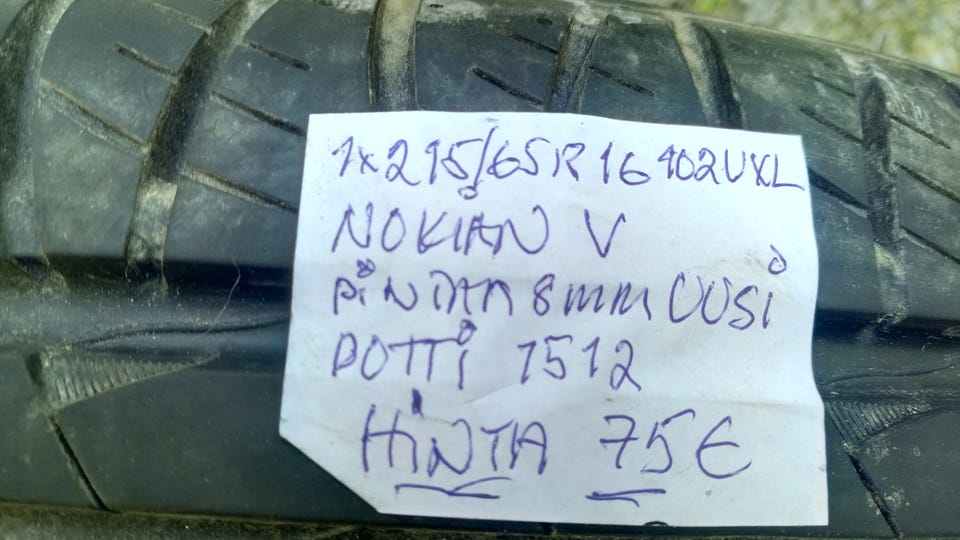 1x215/65R16 102VXL
NOKIAN V
PINTAA 8mm UUSI
DOTTI 1512
HINTA 75€